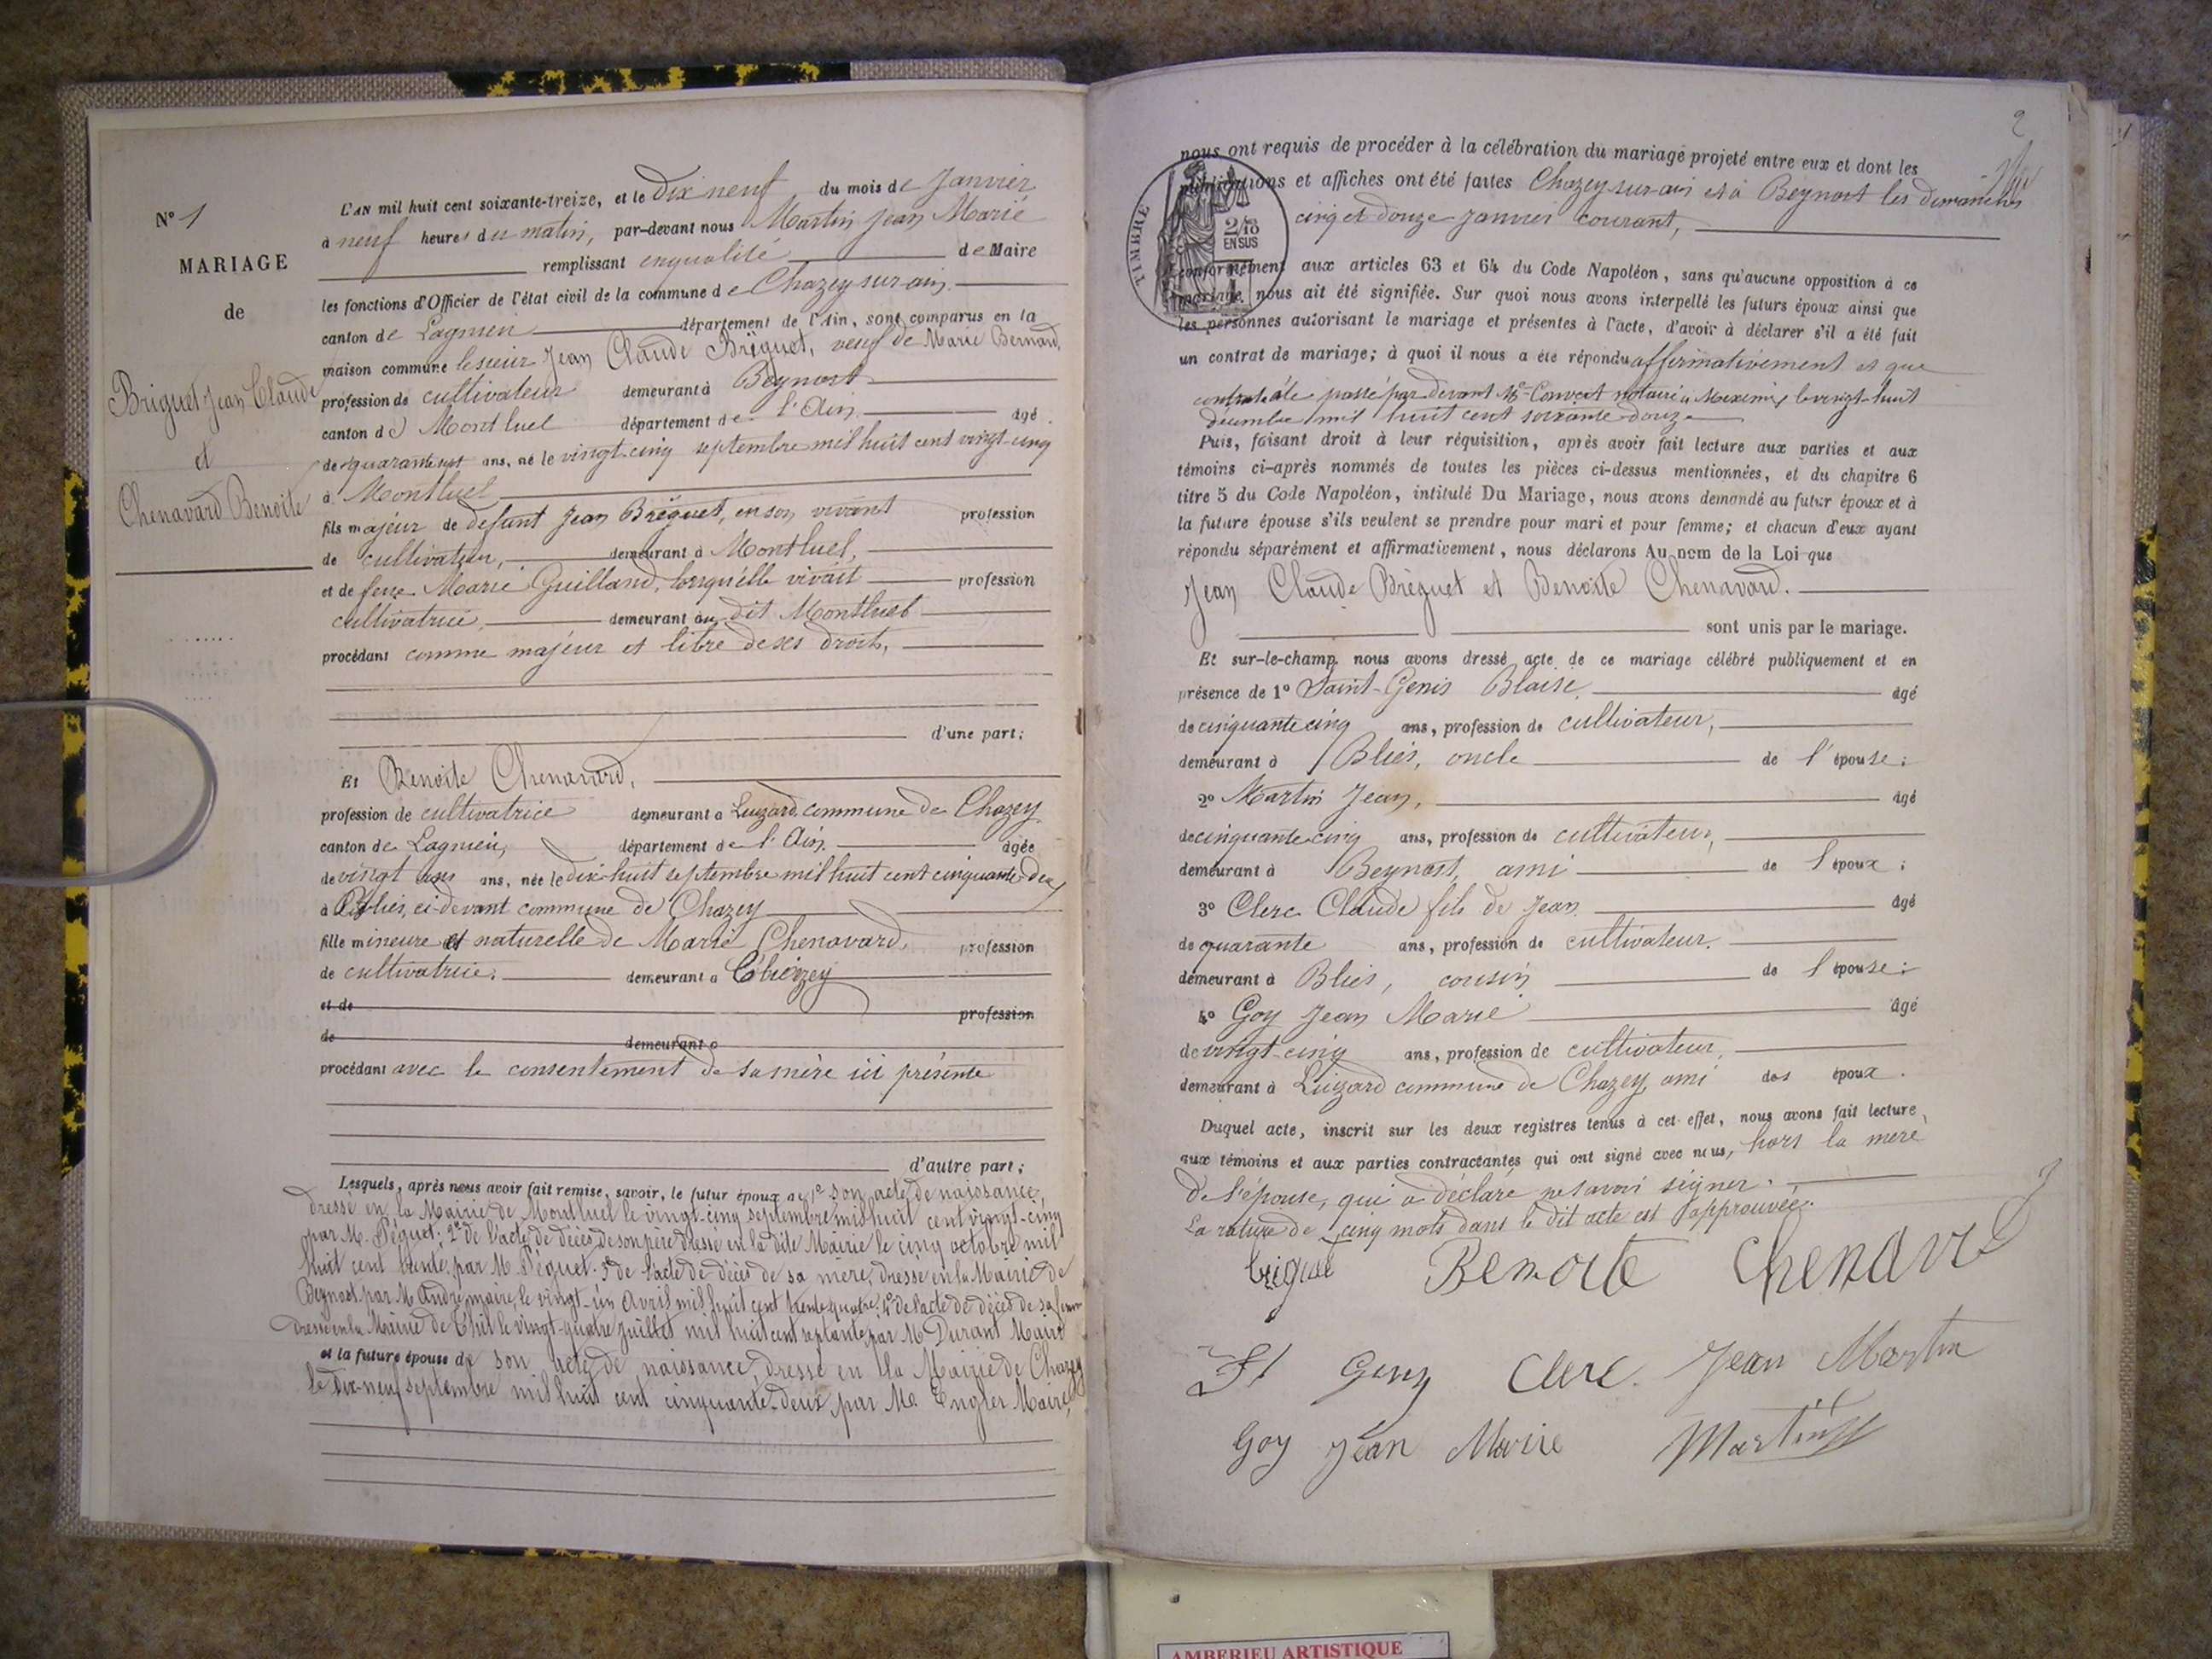 N° 1
MARIAGE
de
Briguet Jean Claude
et
Chenavard Benoite
L'AN mil huit cent soixante-treize, et le dix neuf du mois de Janvier
à neuf heures du matin, par-devant nous Martin Jean Marie
remplissant en qualité de Maire
les fonctions d'Officier de l'état civil de la commune de Chazey sur ain
canton de Lagnieu département de l'Ain, sont comparus en la
maison commune le sieur Jean Claude Briguet, veuf de Marie Bernard,
profession de cultivateur demeurant à Beynost
canton de Montluel département de l'Ain âgé
de quarante sept ans, né le vingt-cinq septembre mil huit cent vingt-cinq
à Montluel
fils majeur de defunt Jean Bréguet, en son vivant profession
de cultivateur, demeurant à Montluel,
et de feue Marie Guilland, lorsqu'elle vivait profession
cultivatrice, demeurant au dit Montluel
procédant comme majeur et libre de ses droits,
d'une part;
Et Benoite Chenavard,
profession de cultivatrice demeurant à Luizard, commune de Chazey
canton de Lagnieu, département de l'Ain âgée
de vingt ans ans, née le dix-huit septembre mil huit cent cinquante-deux
à Blies, ci-devant commune de Chazey
fille mineure et naturelle de Marie Chenavard, profession
de cultivatrice, demeurant à Chazey
et de profession
de demeurant à
procédant avec le consentement de sa mère ici présente
d'autre part;
Lesquels, après nous avoir fait remise, savoir, le futur époux de 1° son acte de naissance,
dressé en la Mairie de Montluel le vingt-cinq septembre mil huit cent vingt-cinq
par M. Péguet; 2° de l'acte de décès de son père dressé en la dite Mairie le cinq octobre mil
huit cent trente par M. Péguet. 3° de l'acte de décès de sa mère, dressé en la Mairie de
Beynost par M. André, maire, le vingt-un Avril mil huit cent trente quatre. 4° de l'acte de décès de sa femme
dressé en la Mairie de Thil le vingt-quatre juillet mil huit cent septante par M. Durant Maire
et la future épouse de son acte de naissance, dressé en la Mairie de Chazey
le dix-neuf septembre mil huit cent cinquante-deux par M. Engler Maire,
2
nous ont requis de procéder à la célébration du mariage projeté entre eux et dont les
publications et affiches ont été faites Chazey-sur-ain et à Beynost les dimanches
cinq et douze Janvier courant,
TIMBRE
2/10
EN SUS
conformément aux articles 63 et 64 du Code Napoléon, sans qu'aucune opposition à ce
mariage nous ait été signifiée. Sur quoi nous avons interpellé les futurs époux ainsi que
les personnes autorisant le mariage et présentes à l'acte, d'avoir à déclarer s'il a été fait
un contrat de mariage; à quoi il nous a été répondu affirmativement et que
contrat a été passé par devant Me Convert notaire à Meximieux le vingt-huit
décembre mil huit cent soixante-douze
Puis, faisant droit à leur réquisition, après avoir fait lecture aux parties et aux
témoins ci-après nommés de toutes les pièces ci-dessus mentionnées, et du chapitre 6
titre 5 du Code Napoléon, intitulé Du Mariage, nous avons demandé au futur époux et à
la future épouse s'ils veulent se prendre pour mari et pour femme; et chacun d'eux ayant
répondu séparément et affirmativement, nous déclarons Au nom de la Loi que
Jean Claude Bréguet et Benoite Chenavard.
sont unis par le mariage.
Et sur-le-champ nous avons dressé acte de ce mariage célébré publiquement et en
présence de 1° Saint-Genis Blaise, âgé
de cinquante cinq ans, profession de cultivateur,
demeurant à Blies, oncle de l'épouse;
2° Martin Jean, âgé
de cinquante cinq ans, profession de cultivateur,
demeurant à Beynost, ami de l'époux;
3° Clerc Claude fils de Jean âgé
de quarante ans, profession de cultivateur.
demeurant à Blies, cousin de l'épouse;
4° Goy Jean Marie âgé
de vingt-cinq ans, profession de cultivateur,
demeurant à Luizard commune de Chazey, ami des époux.
Duquel acte, inscrit sur les deux registres tenus à cet effet, nous avons fait lecture
aux témoins et aux parties contractantes qui ont signé avec nous, hors la mère
de l'épouse, qui a déclaré ne savoir signer.
La rature de cinq mots dans le dit acte est approuvée.
briguet Benoite Chenavrd
St Geny Clerc Jean Martin
Goy Jean Marie Martin
AMBERIEU ARTISTIQUE